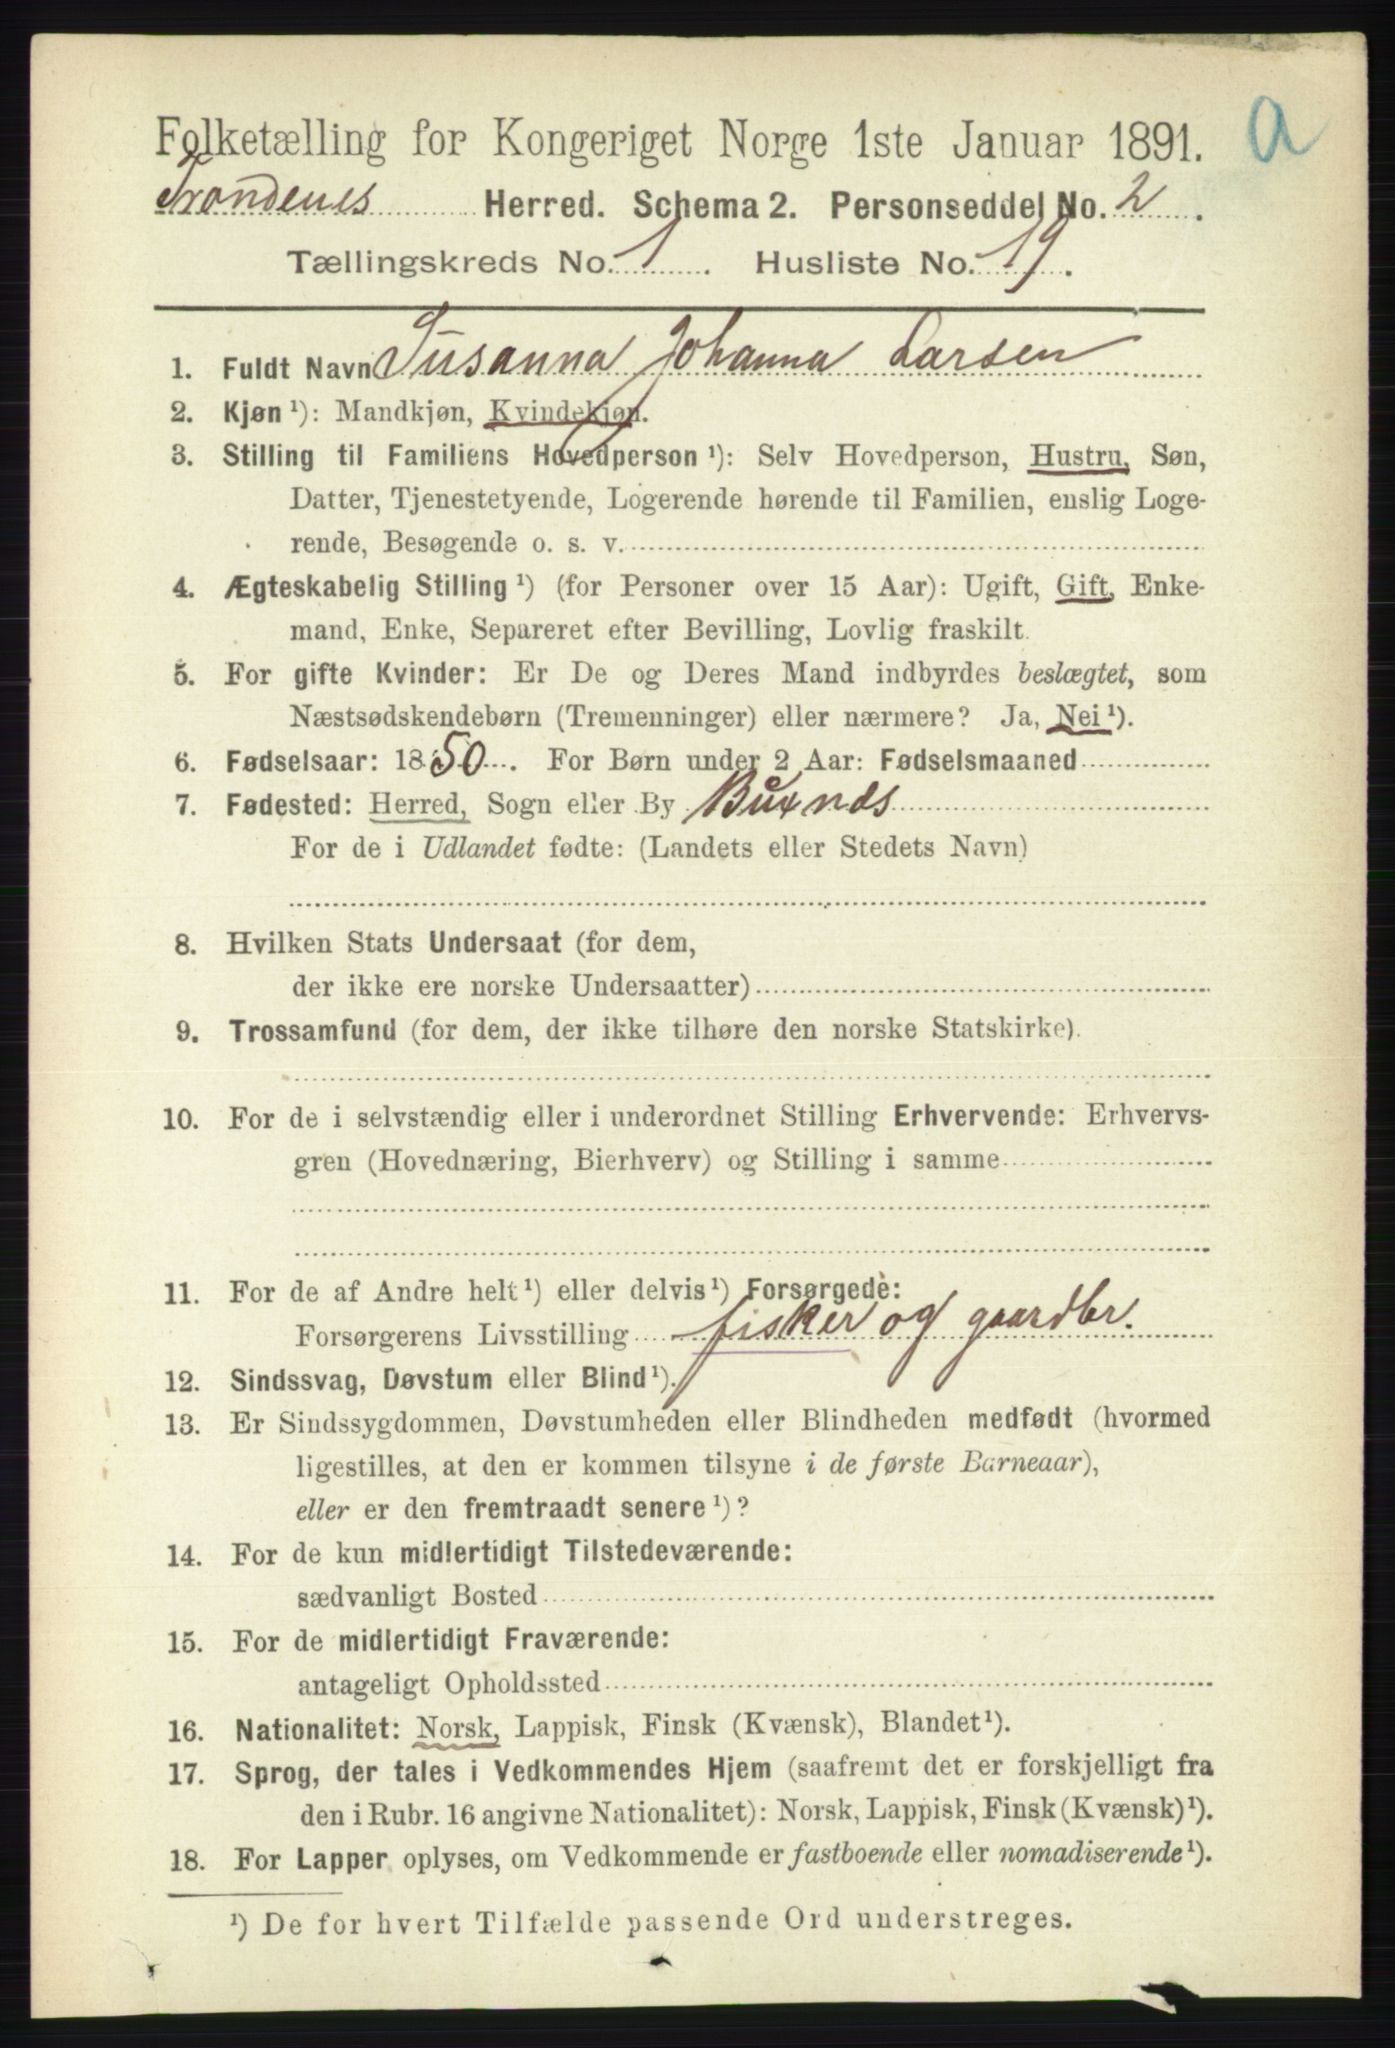 a
Folketælling for Kongeriget Norge 1ste Januar 1891.
Trondenes Herred. Schema 2. Personseddel No. 2.
Tællingskreds No. 1. Husliste No. 19.
1. Fuldt Navn Susanna Johanna Larsen
2. Kjøn ¹): Mandkjøn, Kvindekjøn.
3. Stilling til Familiens Hovedperson ¹): Selv Hovedperson, Hustru, Søn,
Datter, Tjenestetyende, Logerende hørende til Familien, enslig Loge-
rende, Besøgende o. s. v.
4. Ægteskabelig Stilling ¹) (for Personer over 15 Aar): Ugift, Gift, Enke-
mand, Enke, Separeret efter Bevilling, Lovlig fraskilt.
5. For gifte Kvinder: Er De og Deres Mand indbyrdes beslægtet, som
Næstsødskendebørn (Tremenninger) eller nærmere? Ja, Nei ¹).
6. Fødselsaar: 1850. For Børn under 2 Aar: Fødselsmaaned
7. Fødested: Herred, Sogn eller By Buxnæs
For de i Udlandet fødte: (Landets eller Stedets Navn)
8. Hvilken Stats Undersaat (for dem,
der ikke ere norske Undersaatter)
9. Trossamfund (for dem, der ikke tilhøre den norske Statskirke).
10. For de i selvstændig eller i underordnet Stilling Erhvervende: Erhvervs-
gren (Hovednæring, Bierhverv) og Stilling i samme
11. For de af Andre helt ¹) eller delvis ¹) Forsørgede:
Forsørgerens Livsstilling fisker og gaardbr.
12. Sindssvag, Døvstum eller Blind ¹).
13. Er Sindssygdommen, Døvstumheden eller Blindheden medfødt (hvormed
ligestilles, at den er kommen tilsyne i de første Barneaar),
eller er den fremtraadt senere ¹)?
14. For de kun midlertidigt Tilstedeværende:
sædvanligt Bosted
15. For de midlertidigt Fraværende:
antageligt Opholdssted
16. Nationalitet: Norsk, Lappisk, Finsk (Kvænsk), Blandet ¹).
17. Sprog, der tales i Vedkommendes Hjem (saafremt det er forskjelligt fra
den i Rubr. 16 angivne Nationalitet): Norsk, Lappisk, Finsk (Kvænsk) ¹).
18. For Lapper oplyses, om Vedkommende er fastboende eller nomadiserende ¹).
¹) De for hvert Tilfælde passende Ord understreges.